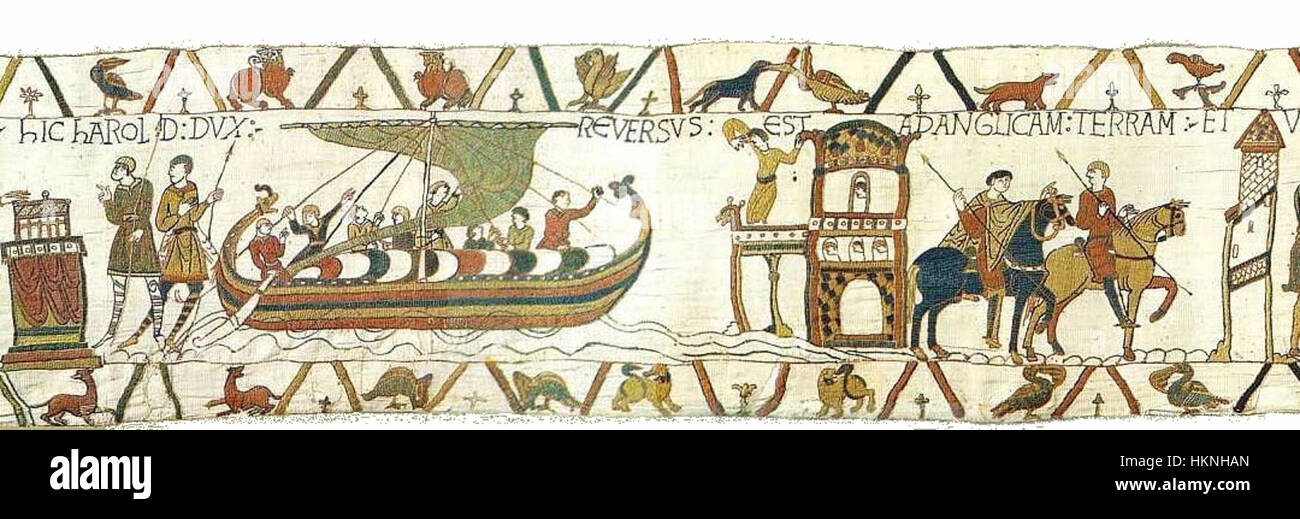 hIC hAROL:D:DVX:- REVERSVS: EST AD ANGLICAM:TERRAM:- ET V
alamy
alamy
Image ID: HKNHAN
www.alamy.com